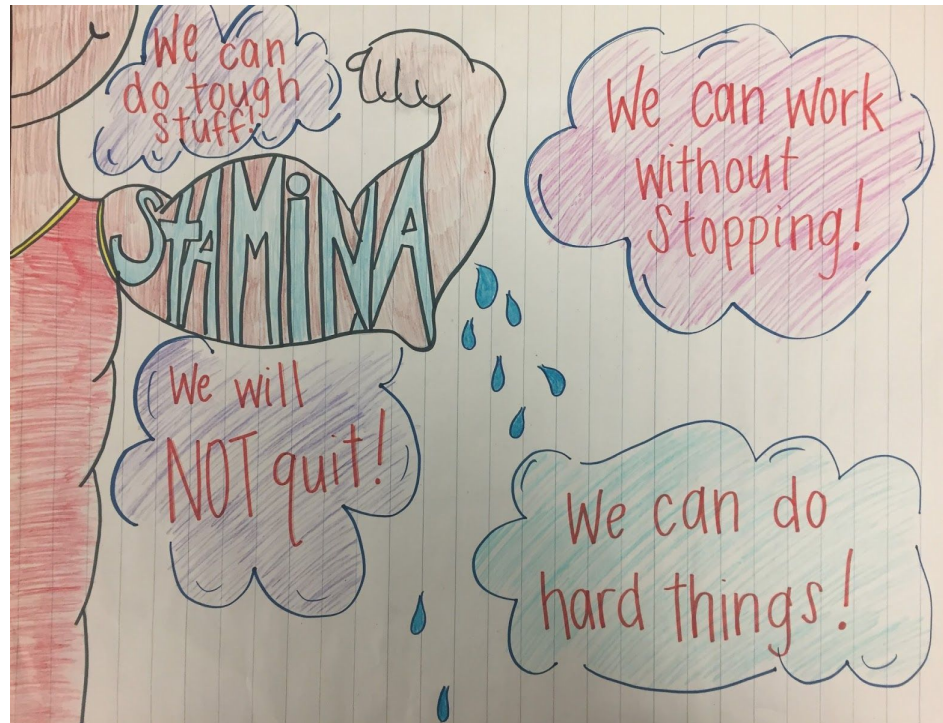 We can
do tough
stuff!
STAMiNA
We can work
without
stopping!
We will
NOT quit!
We can do
hard things!